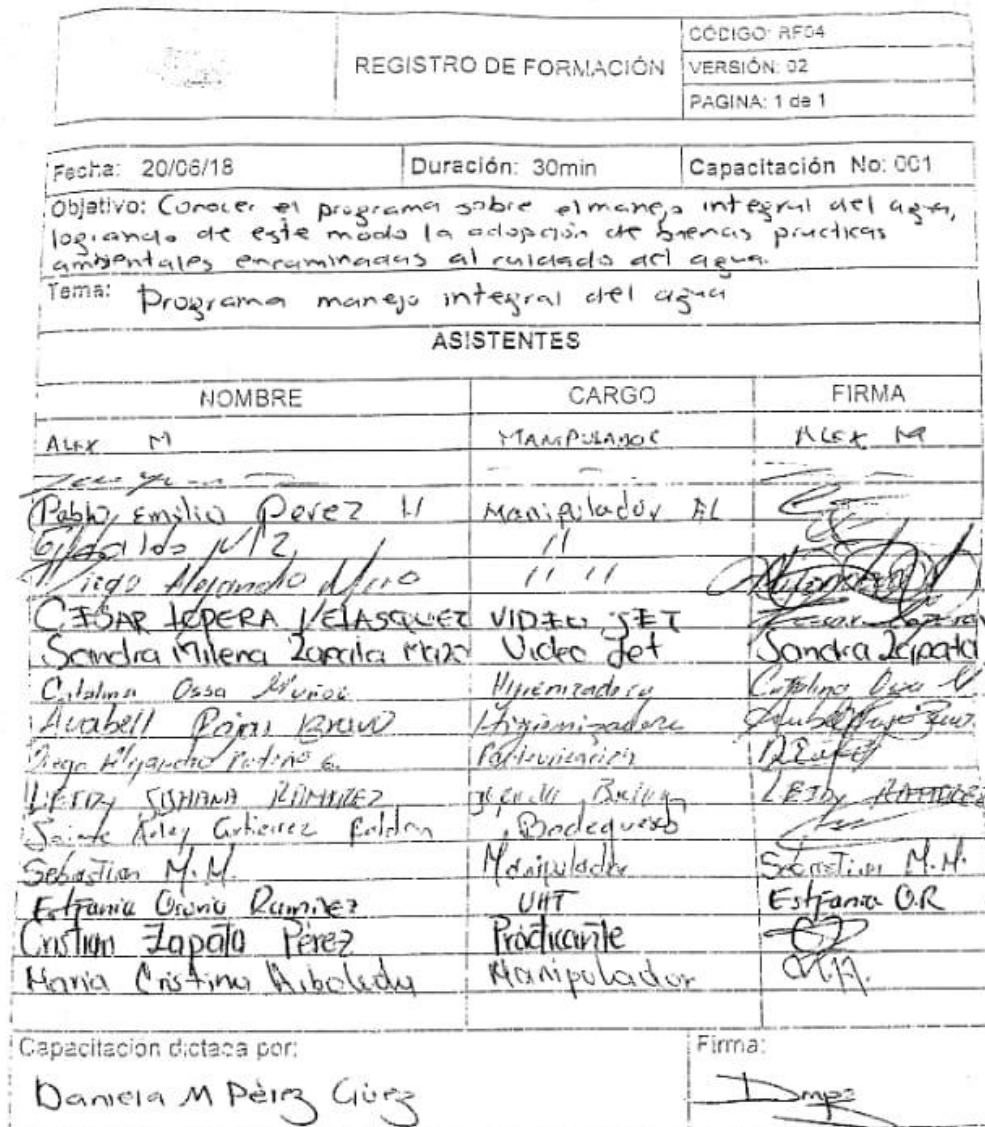 REGISTRO DE FORMACIÓN
CÓDIGO: RF04
VERSIÓN: 02
PAGINA: 1 de 1
Fecha: 20/06/18 Duración: 30min Capacitación No: 001
Objetivo: Conocer el programa sobre el manejo integral del agua,
logrando de este modo la adopción de buenas practicas
ambientales encaminadas al cuidado del agua.
Tema: Programa manejo integral del agua
ASISTENTES
NOMBRE CARGO FIRMA
ALEX M MANIPULADOR ALEX M
Pablo Emilio Perez Manipulador
" 
Diego Alejandro " "
CESAR LOPERA VELASQUEZ VIDEO JET
Sandra Milena Zapata Mazo Video Jet Sandra Zapata
Catalina Ossa Muñoz Higienizadora Catalina Ossa M
Rojas Bravo Higienizadora
Diego Alejandro Patiño G.
LEIDY RAMIREZ LEIDY RAMIREZ
Gutierrez Bodeguero
Sebastian M.M. Manipulador Sebastian M.M.
Estfania Osorio Ramirez UHT Estfania O.R
Cristian Zapata Pérez Practicante
Maria Cristina Arboleda Manipulador
Capacitación dictada por: Firma:
Daniela M Pérez